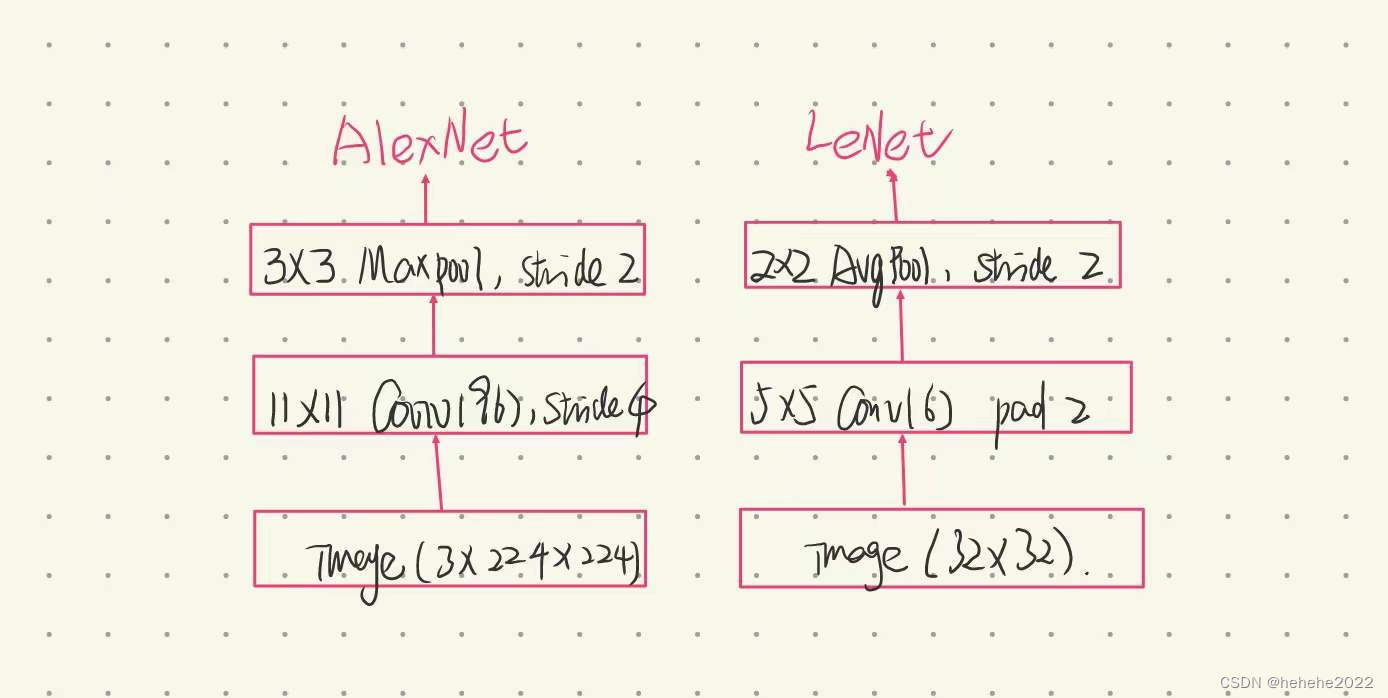 AlexNet
LeNet
3X3 Maxpool, stride 2
2X2 AvgPool, stride 2
11X11 Conv(96), stride 4
5X5 Conv(6) pad 2
Image (3X224X224)
Image (32X32).
CSDN @hehehe2022